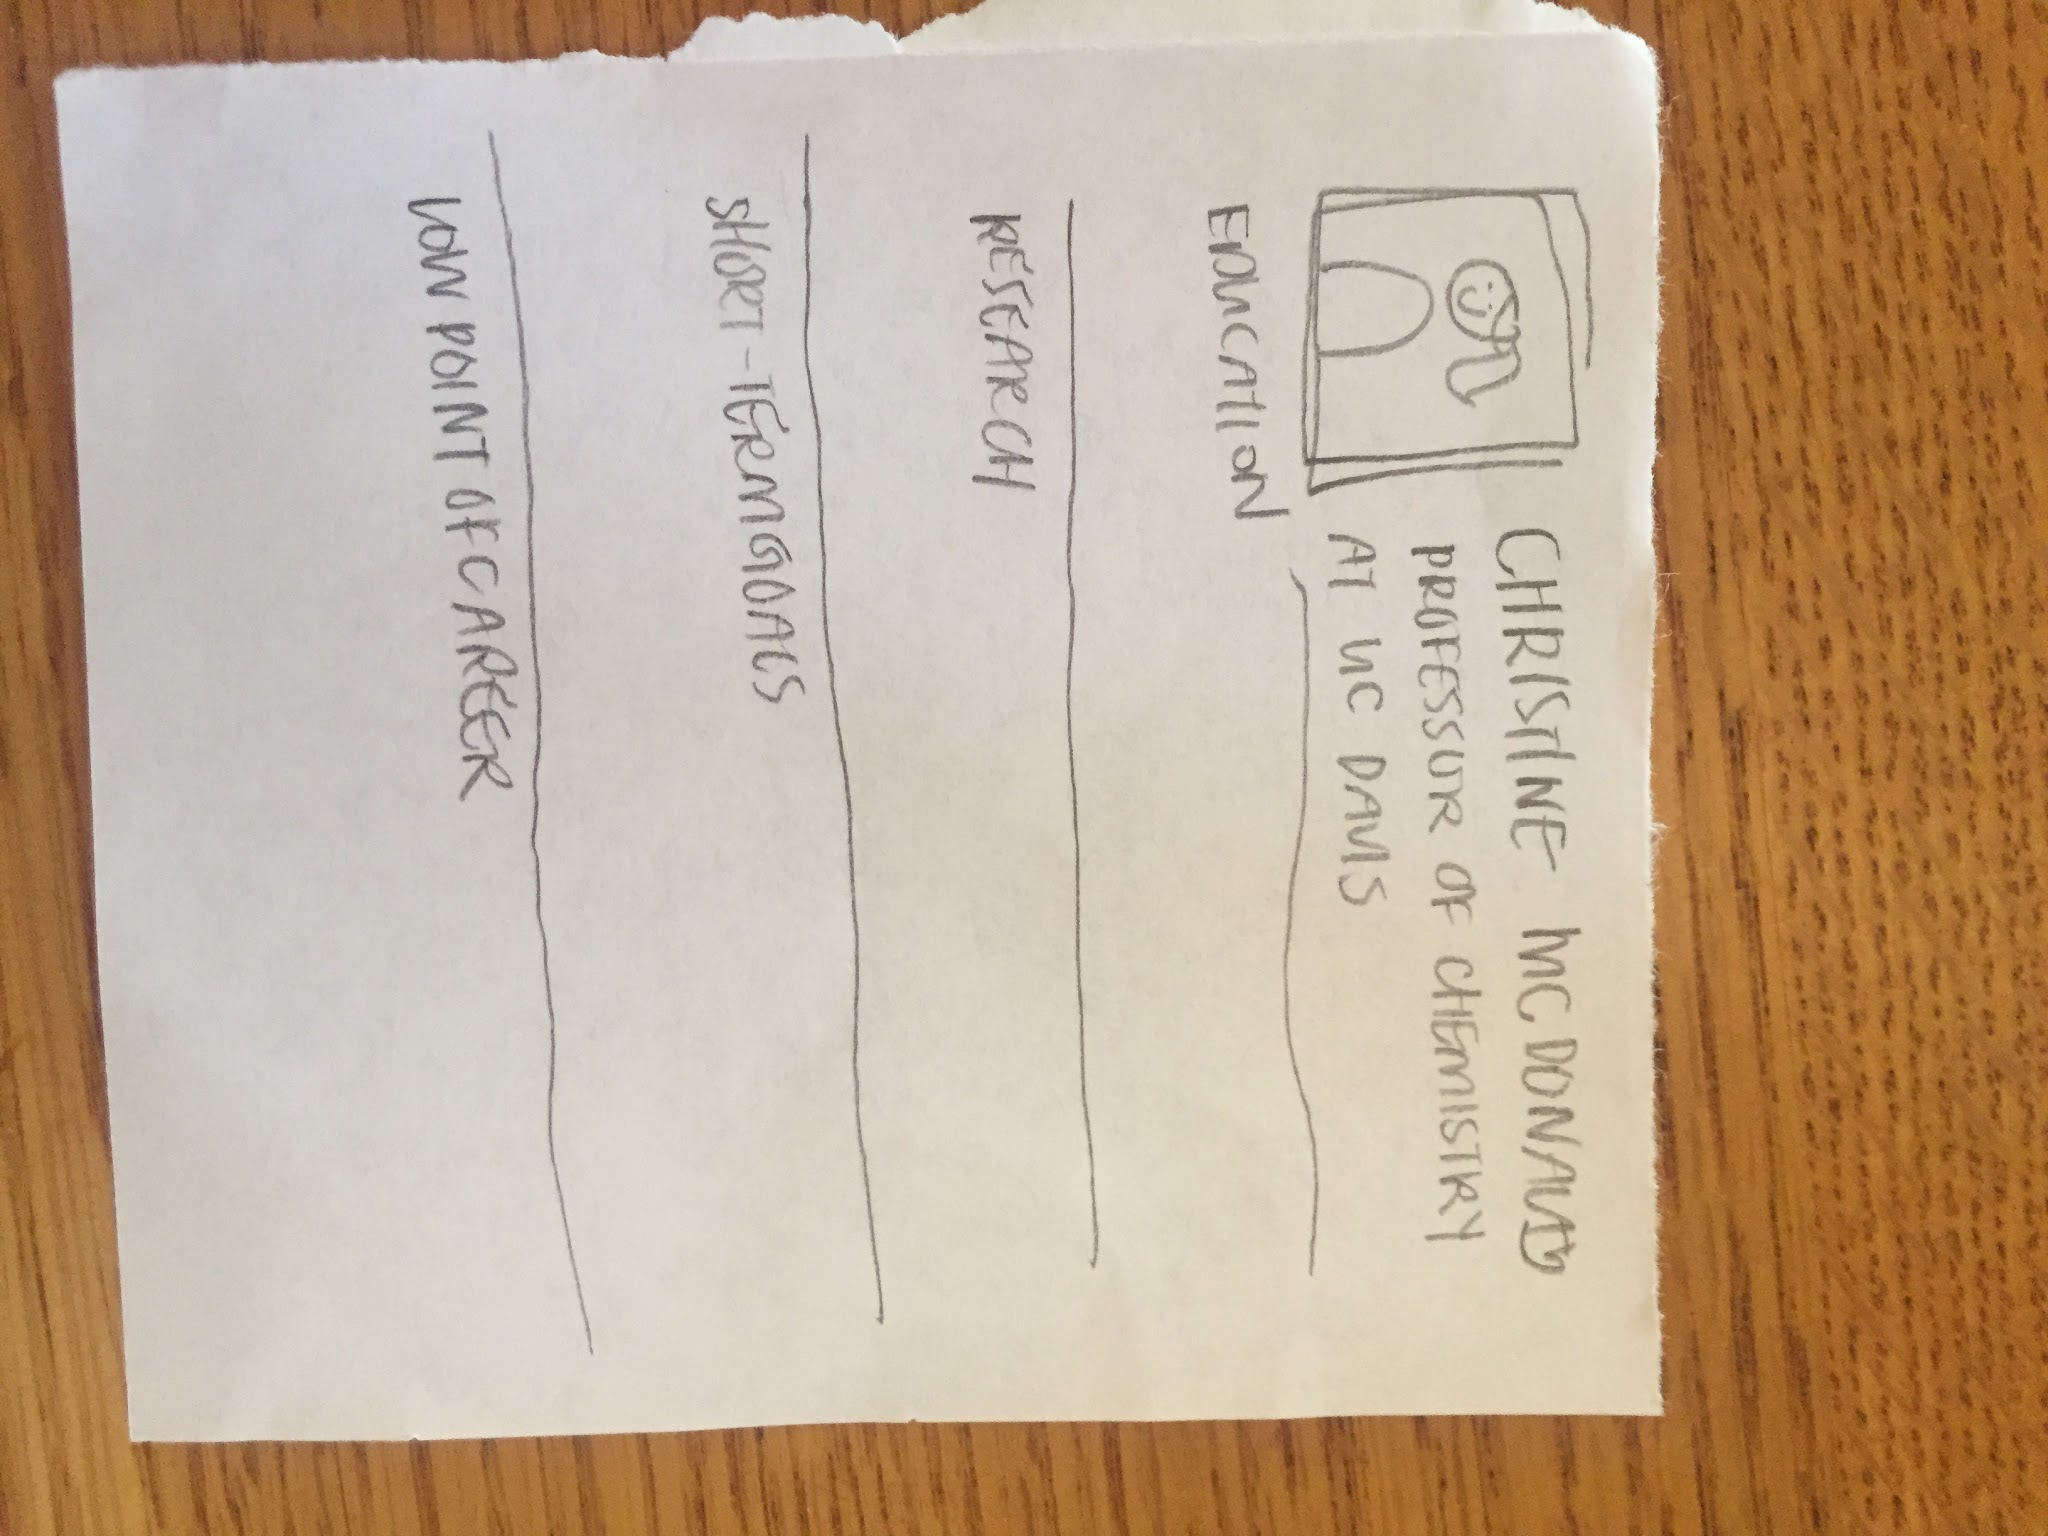 CHRISTINE MCDONALD
PROFESSOR OF CHEMISTRY
AT UC DAVIS
EDUCATION
RESEARCH
SHORT-TERM GOALS
LOW POINT OF CAREER